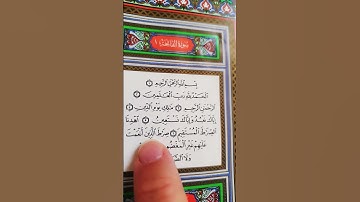 سورة الفاتحة ١
بسم الله الرحمن الرحيم ١
الحمد لله رب العلمين ٢
الرحمن الرحيم ٣ ملك يوم الدين ٤
إياك نعبد وإياك نستعين ٥ اهدنا
الصرط المستقيم ٦ صرط الذين أنعمت
عليهم غير المغضوب
ولا الضا